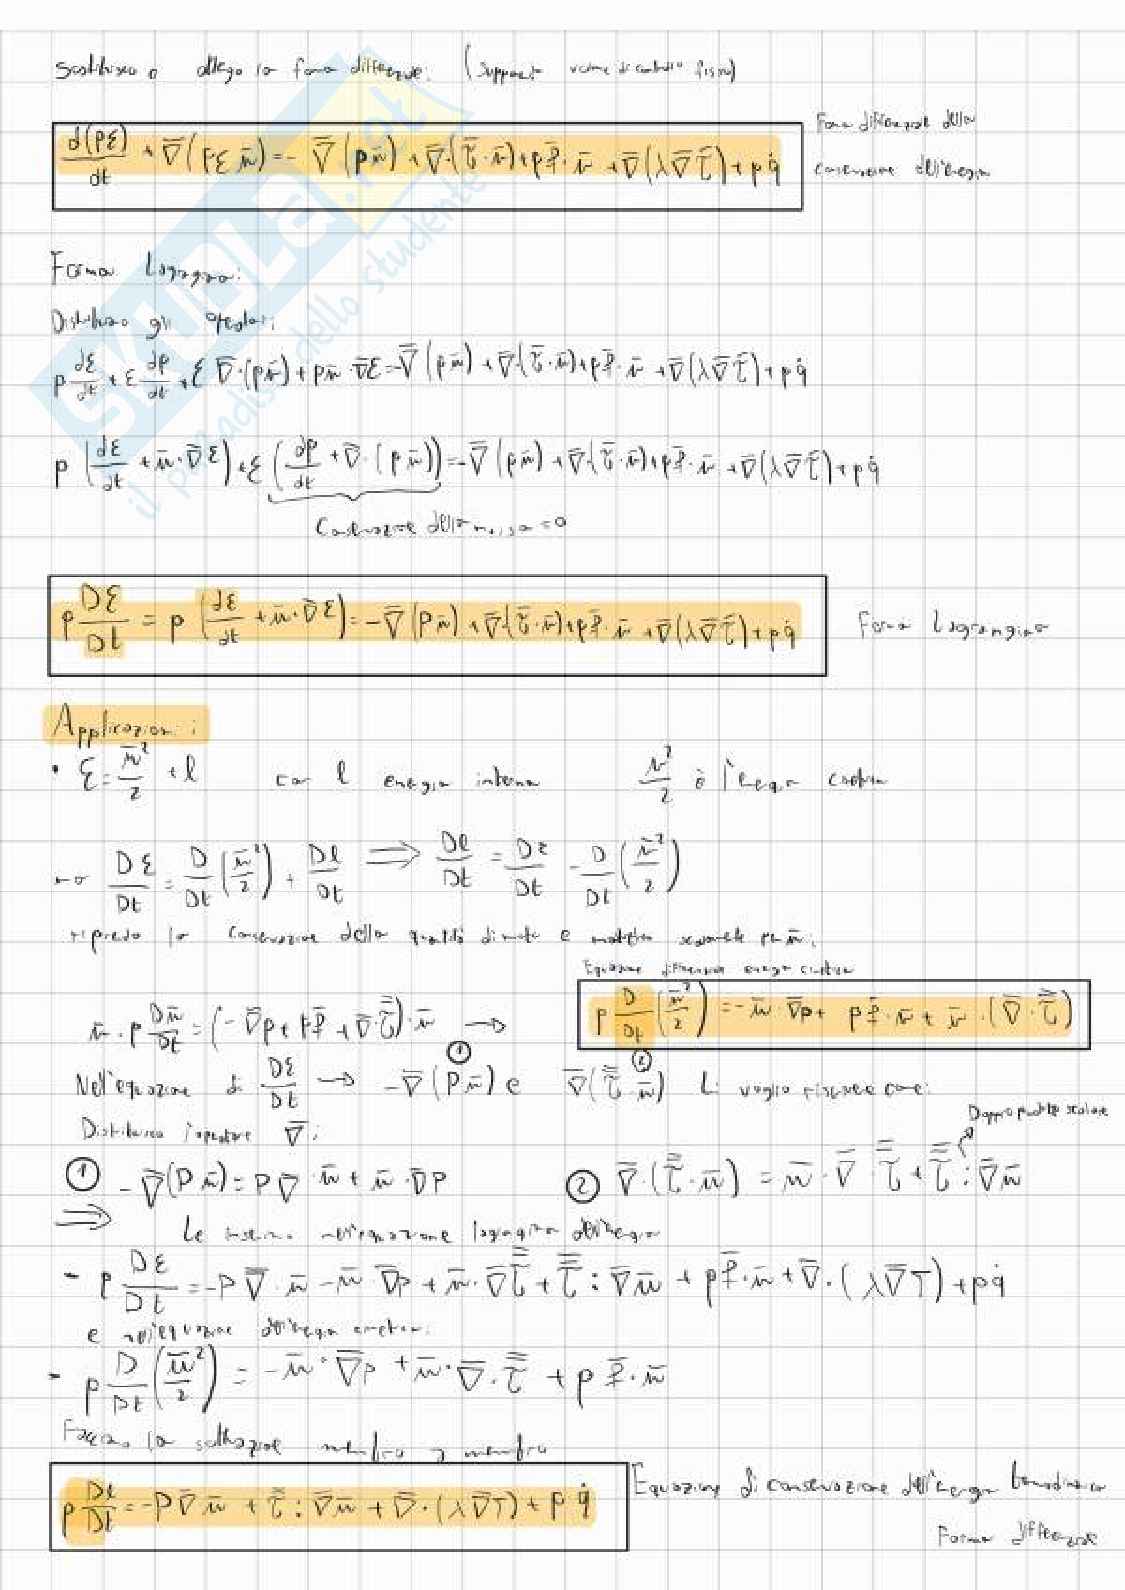 Sostituisco e ottengo la forma differenziale: (supposto volume di controllo fisso)
d(ρε)/dt + ∇̄(ρε ū) = - ∇̄(pū) + ∇̄·(τ̿·ū) + ρf̄·ū + ∇̄(λ∇̄T) + ρq̇
Forma differenziale della
conservazione dell'energia
Forma Lagrangiana:
Distribuisco gli operatori:
ρ dε/dt + ε dρ/dt + ε ∇̄·(ρū) + ρū·∇̄ε = -∇̄(pū) + ∇̄·(τ̿·ū) + ρf̄·ū + ∇̄(λ∇̄T) + ρq̇
ρ(dε/dt + ū·∇̄ε) + ε(dρ/dt + ∇̄·(ρū)) = -∇̄(pū) + ∇̄·(τ̿·ū) + ρf̄·ū + ∇̄(λ∇̄T) + ρq̇
Conservazione della massa = 0
ρ Dε/Dt = ρ(dε/dt + ū·∇̄ε) = -∇̄(pū) + ∇̄·(τ̿·ū) + ρf̄·ū + ∇̄(λ∇̄T) + ρq̇
Forma Lagrangiana
Applicazioni:
• ε = ū²/2 + l con l energia interna u²/2 è l'energia cinetica
Dε/Dt = D/Dt(ū²/2) + Dl/Dt ⟹ Dl/Dt = Dε/Dt - D/Dt(ū²/2)
riprendo la conservazione della quantità di moto e moltiplico scalarmente per ū:
Equazione differenziale energia cinetica
ū·ρ Dū/Dt = (-∇̄p + ρf̄ + ∇̄·τ̿)·ū →
ρ D/Dt(ū²/2) = -ū·∇̄p + ρf̄·ū + ū·(∇̄·τ̿)
Nell'equazione di Dε/Dt → -∇̄(pū) ① e ∇̄(τ̿·ū) ② Li voglio riscrivere come:
Distribuisco l'operatore ∇̄:
Doppio prodotto scalare
① -∇̄(pū) = p∇·ū + ū·∇̄p ② ∇̄·(τ̿·ū) = ū·∇̄τ̿ + τ̿:∇̄ū
⟹ Le inserisco nell'equazione lagrangiana dell'energia
- ρ Dε/Dt = -p∇̄·ū - ū·∇̄p + ū·∇̄τ̿ + τ̿:∇̄ū + ρf̄·ū + ∇̄·(λ∇̄T) + ρq̇
e nell'equazione dell'energia cinetica:
- ρ D/Dt(ū²/2) = -ū·∇̄p + ū·∇̄·τ̿ + ρf̄·ū
Faccio la sottrazione membro a membro
ρ Dl/Dt = -p∇̄ū + τ̿:∇̄ū + ∇̄·(λ∇̄T) + ρq̇
Equazione di conservazione dell'energia termodinamica
Forma differenziale